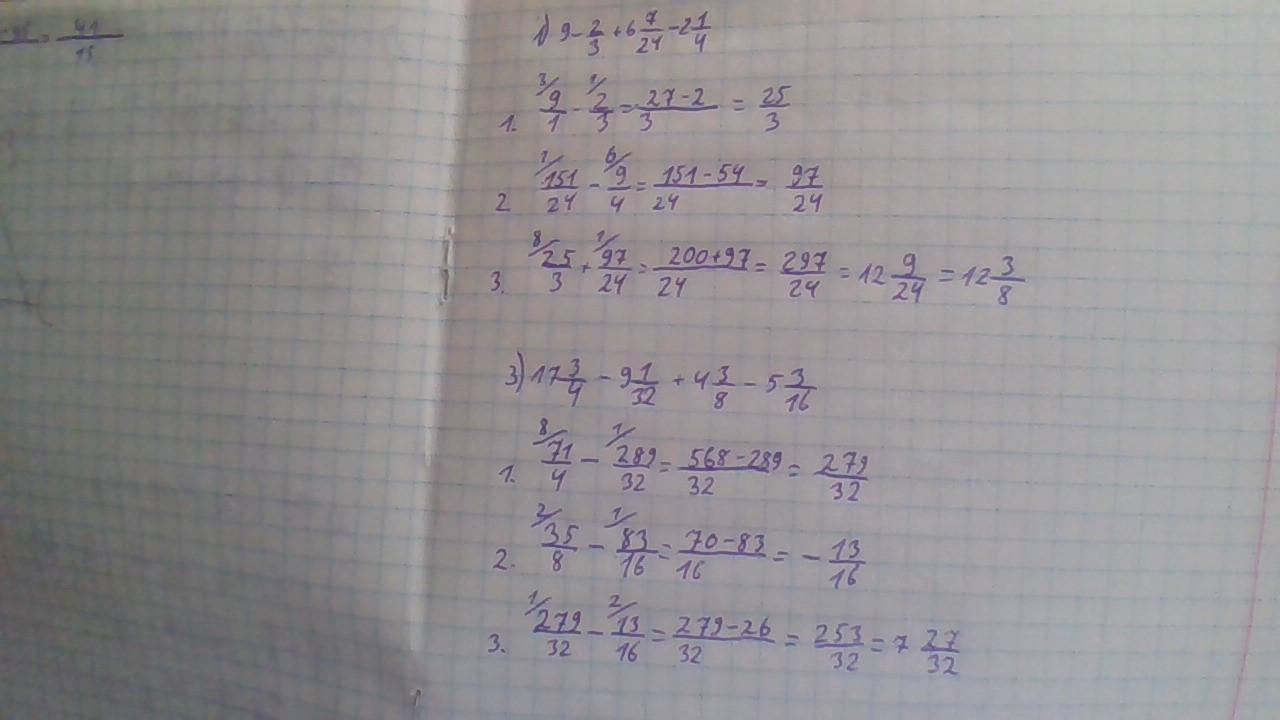 1) 9 - 2/3 + 6 7/24 - 2 1/4
1. 3/ 9/1 - 1/ 2/3 = 27-2/3 = 25/3
2 1/ 151/24 - 6/ 9/4 = 151-54/24 = 97/24
3. 8/ 25/3 + 1/ 97/24 = 200+97/24 = 297/24 = 12 9/24 = 12 3/8
3) 17 3/4 - 9 1/32 + 4 3/8 - 5 3/16
1. 8/ 71/4 - 1/ 289/32 = 568-289/32 = 279/32
2. 2/ 35/8 - 1/ 83/16 = 70-83/16 = - 13/16
3. 1/ 279/32 - 2/ 13/16 = 279-26/32 = 253/32 = 7 27/32